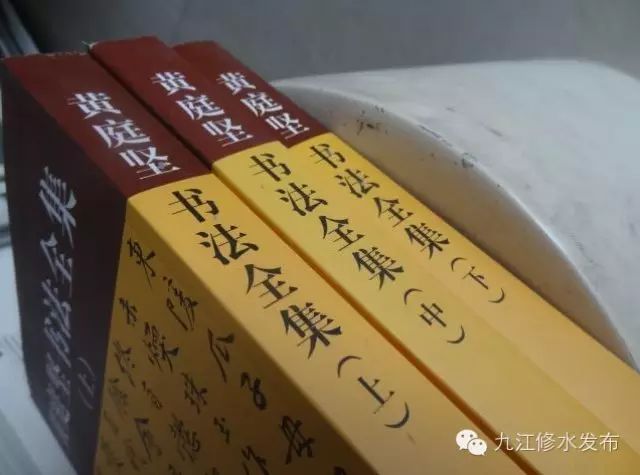 黄庭坚
书法全集(上)
黄庭坚
书法全集(中)
黄庭坚
书法全集(下)
书法全集
(上)
東陵瓜
九江修水发布